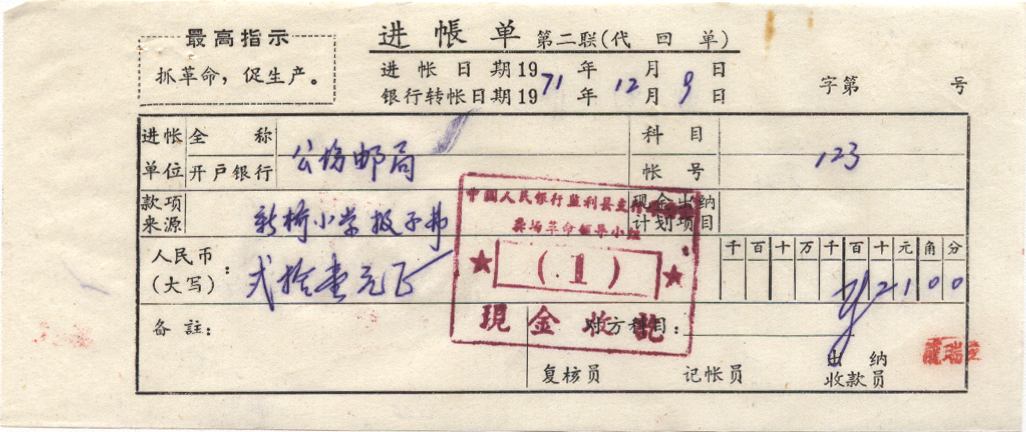 最高指示
抓革命，促生产。
进帐单 第二联(代回单)
进帐日期19 年 月 日
银行转帐日期1971年12月9日
字第 号
进帐单位 全称 邮局 科目
开户银行 帐号 123
款项来源 新桥小学报子弟 现金出纳计划项目
中国人民银行监利县支行
革命领导小组
★ (1) ★
現金收訖
人民币(大写)： 弍拾壹元正
千百十万千百十元角分
¥2100
备註： 对方科目：
复核员 记帐员 出纳收款员